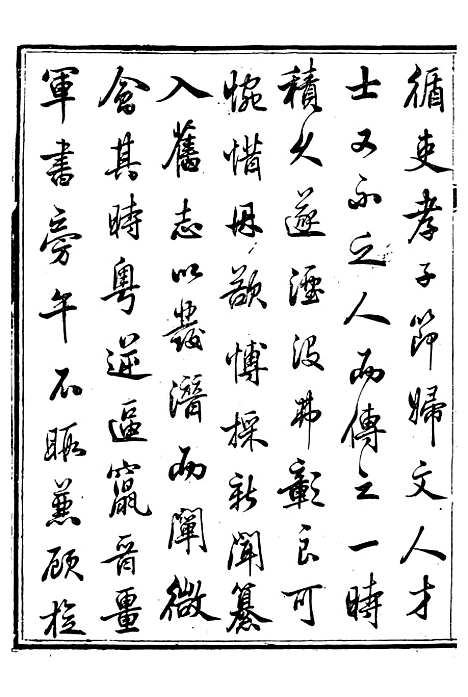 循吏孝子節婦文人才
士又不乏人而傳之一時
積久遂湮沒弗彰良可
惋惜毋歆博採新聞纂
入舊志以發潛而闡微
會其時粵逆逼竄晋畺
軍書旁午不暇兼顧於